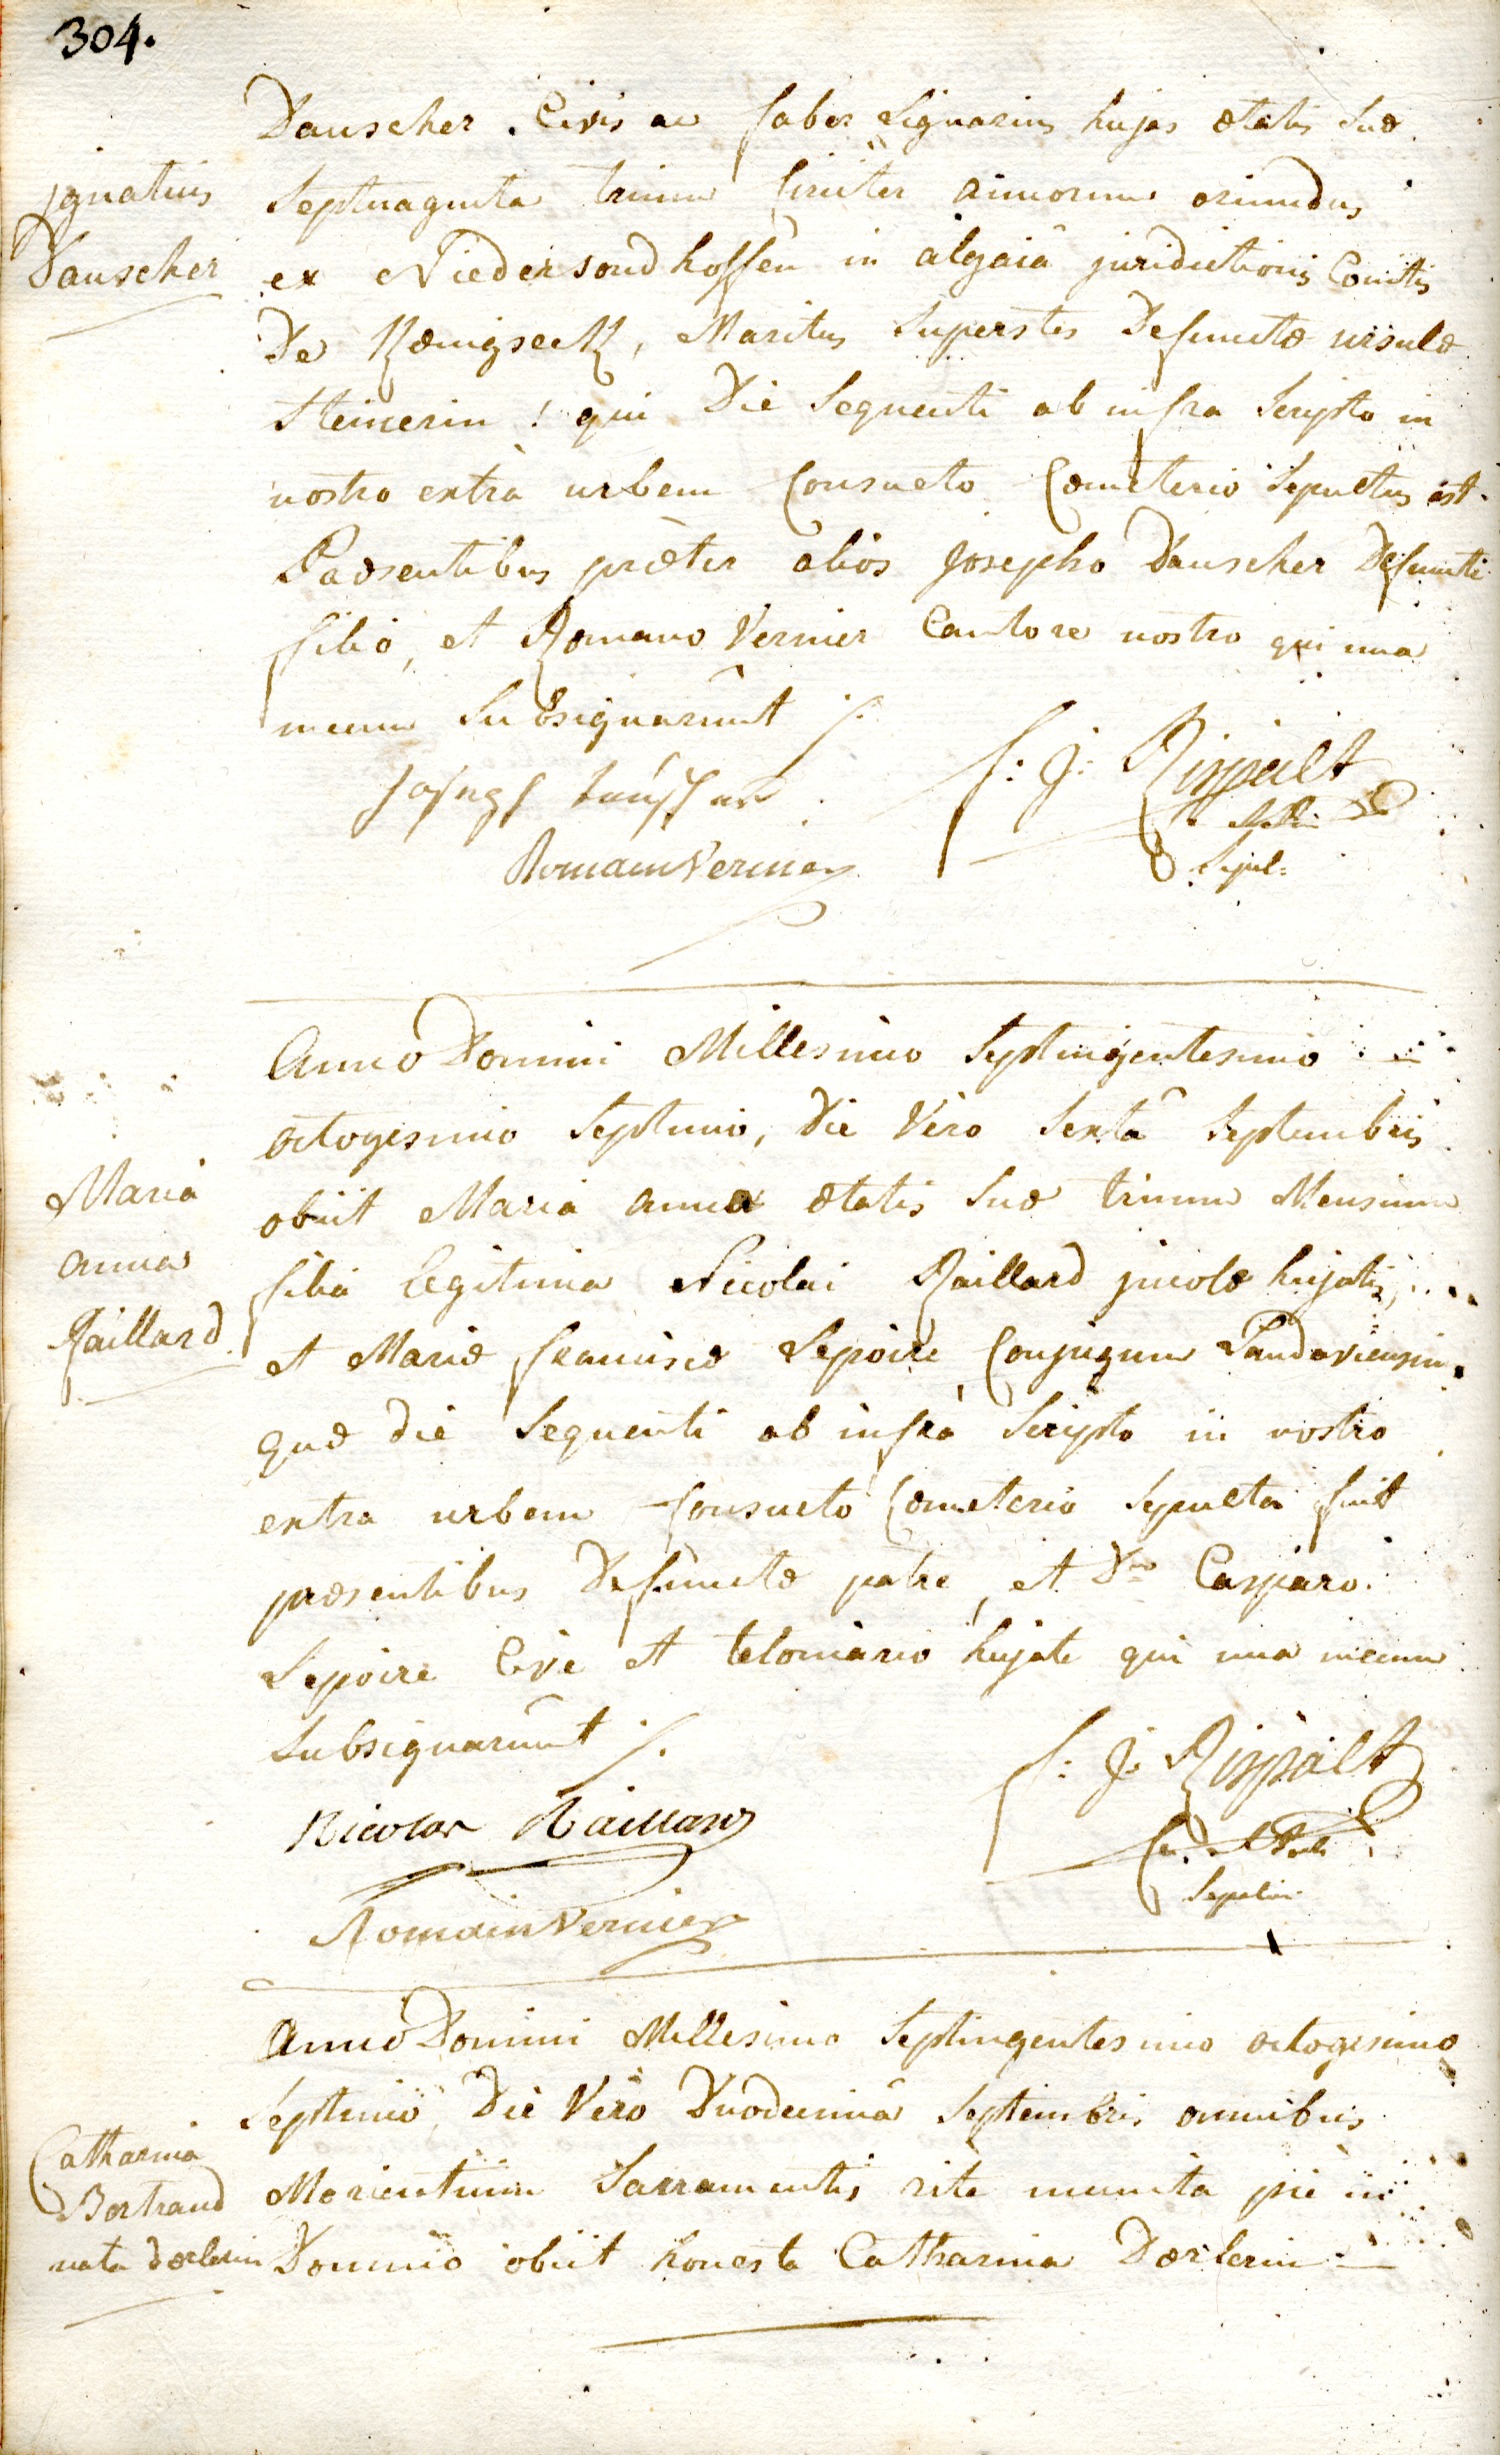 304.
Dauscher. Civis ac faber Lignarius hujas ætatis suæ
Ignatius
Dauscher
Septuaginta trium circiter annorum oriundus
ex Niedersondhoffen in algaia juridictionis Comitis
De Kœnigseck, Maritus Superstes Defunctæ ursulæ
Steinerin! qui Die Sequenti ab infra Scripto in
nostro extrà urbem Consueto Cœmeterio Sepultus est.
Præsentibus præter alios Josepho Dauscher Defuncti
filio, et Romano Vernier Cantore nostro qui una
mecum Subsignarunt
Joseph Tauscher
Romain Vernier
f: J: Rippelt
Sepul:
Anno Domini Millesimo Septingentesimo
octogesimo Septimo, Die Vero Sextâ Septembris
Maria
anna
Raillard
obiit Maria anna ætatis Suæ trium Mensium
filia legitima Nicolai Raillard incolæ hujatis,
et Mariæ franciscæ Lepoire Conjugum Landaviensium.
quæ die Sequenti ab infrà Scripto in nostro
extra urbem Consueto Cœmeterio Sepulta fuit
præsentibus Defunctæ patre, et Dno Casparo
Lepoire Cive et teloniario hujate qui una mecum
Subsignarunt
Nicolas Raillard
Romain Vernier
f: J: Rippelt
Anno Domini Millesimo Septingentesimo octogesimo
Septimo, Die Vero Duodecimâ Septembris omnibus
Catharina
Bertrand
nata Dœrlerin
Morientium Sacramentis rite munita pie in
Domino obiit honesta Catharina Dœrlerin